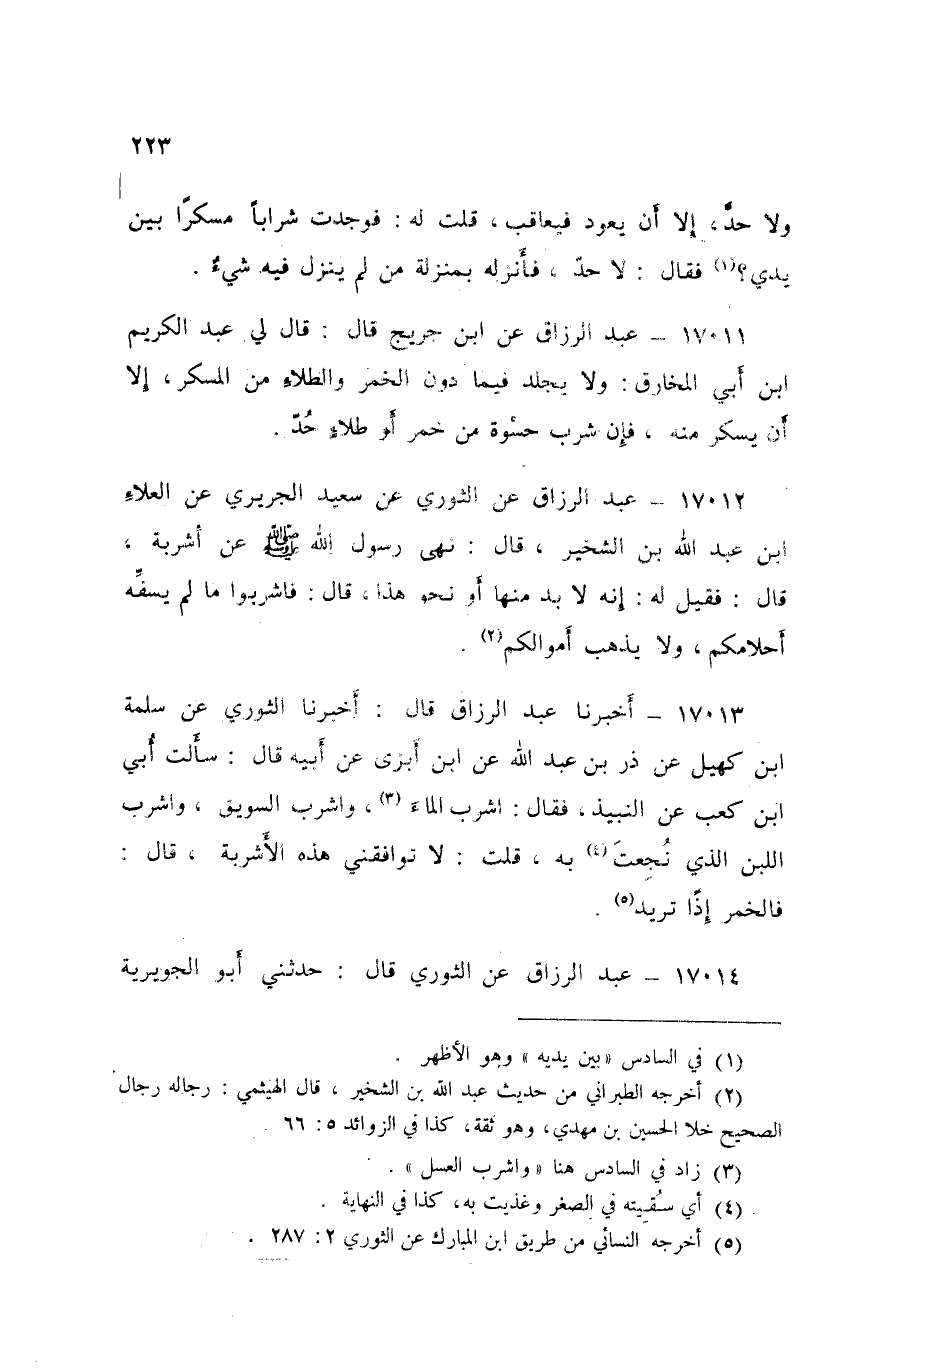 ٢٢٣
ولا حدَّ، إلا أن يعود فيعاقب، قلت له : فوجدت شراباً مسكرًا بين
يدي؟(١) فقال : لا حدّ ، فأَنزله بمنزلة من لم ينزل فيه شيءٌ .
١٧٠١١ – عبد الرزاق عن ابن جريج قال : قال لي عبد الكريم
ابن أَبي المخارق : ولا يجلد فيما دون الخمر والطلاءِ من المسكر، إلا
أَن يسكر منه ، فإن شرب حسْوة من خمر أَو طلاءٍ حُدّ .
١٧٠١٢ – عبد الرزاق عن الثوري عن سعيد الجريري عن العلاءِ
ابن عبد الله بن الشخير ، قال : نهى رسول الله ﷺ عن أشربة ،
قال : فقيل له : إنه لا بد منها أَو نحو هذا، قال : فاشربوا ما لم يسفِّه
أَحلامكم، ولا يذهب أَموالكم(٢) .
١٧٠١٣ – أَخبرنا عبد الرزاق قال : أَخبرنا الثوري عن سلمة
ابن كهيل عن ذر بن عبد الله عن ابن أَبزى عن أَبيه قال : سأَلت أُبي
ابن كعب عن النبيذ، فقال : اشرب الماءَ (٣)، واشرب السويق ، واشرب
اللبن الذي نُجِعتَ(٤) به ، قلت : لا توافقني هذه الأَشربة ، قال :
فالخمر إذًا تريد(٥) .
١٧٠١٤ – عبد الرزاق عن الثوري قال : حدثني أَبو الجويرية
(١) في السادس «بين يديه» وهو الأظهر .
(٢) أخرجه الطبراني من حديث عبد الله بن الشخير ، قال الهيثمي : رجاله رجال
الصحيح خلا الحسين بن مهدي، وهو ثقة، كذا في الزوائد ٥ : ٦٦ .
(٣) زاد في السادس هنا «واشرب العسل» .
(٤) أي سُقيته في الصغر وغذيت به، كذا في النهاية .
(٥) أخرجه النسائي من طريق ابن المبارك عن الثوري ٢ : ٢٨٧ .